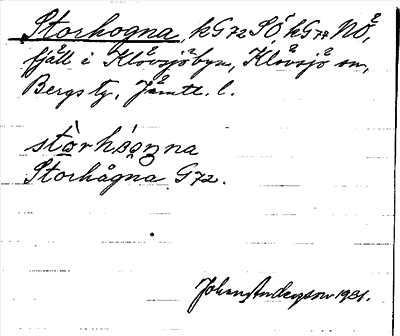 Storhogna, kG72SÖ, kG74NÖ,
fjäll i Klövsjöbyn, Klövsjö sn,
Bergs tg, Jämtl. l.
Storhågna G72.
Johan Anderson 1931.